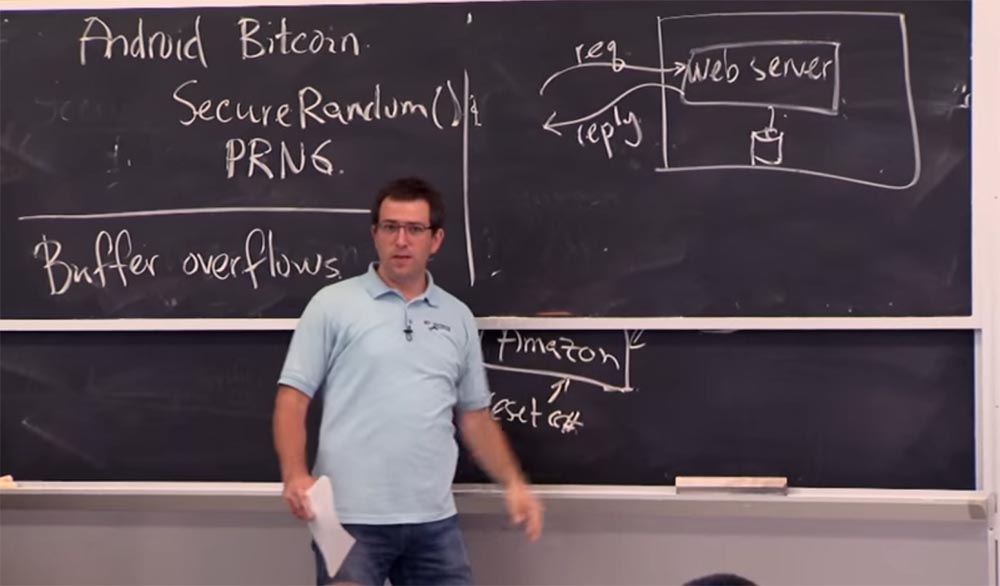 Android Bitcoin
SecureRandom()
PRNG.
Buffer overflows
req
web server
reply
Amazon